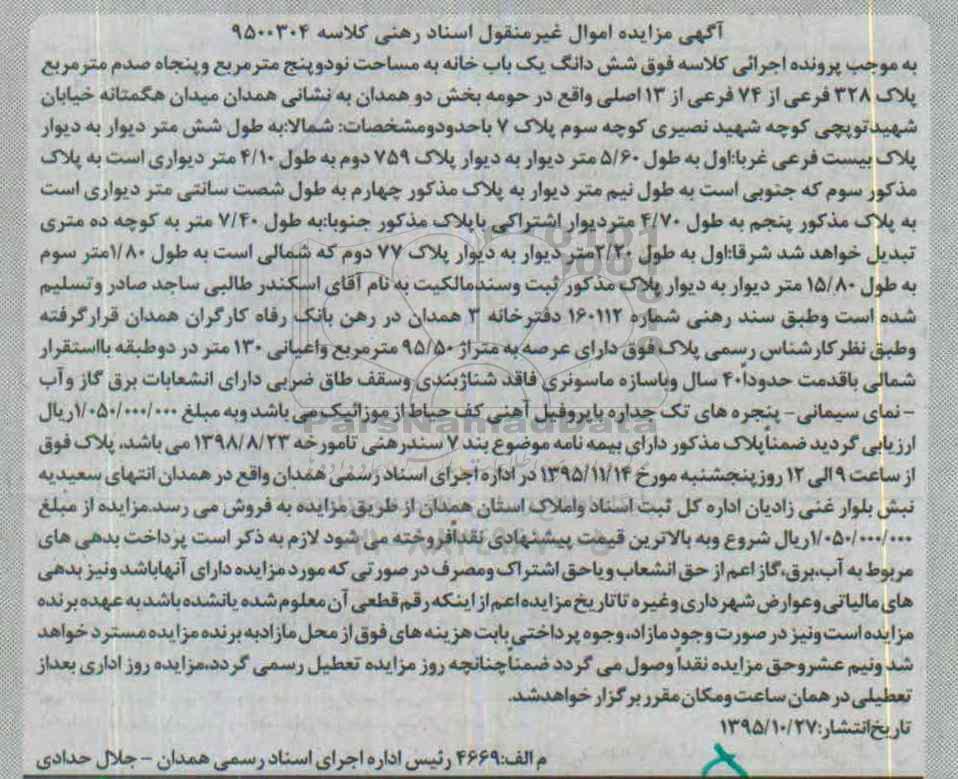 آگهی مزایده اموال غیرمنقول اسناد رهنی کلاسه ۹۵۰۰۳۰۴
به موجب پرونده اجرائی کلاسه فوق شش دانگ یک باب خانه به مساحت نودوپنج مترمربع وپنجاه صدم مترمربع
پلاک ۳۲۸ فرعی از ۷۴ فرعی از ۱۳ اصلی واقع در حومه بخش دو همدان به نشانی همدان میدان هگمتانه خیابان
شهیدتوپچی کوچه شهید نصیری کوچه سوم پلاک ۷ باحدودومشخصات: شمالا:به طول شش متر دیوار به دیوار
پلاک بیست فرعی غربا:اول به طول ۵/۶۰ متر دیوار به دیوار پلاک ۷۵۹ دوم به طول ۴/۱۰ متر دیواری است به پلاک
مذکور سوم که جنوبی است به طول نیم متر دیوار به پلاک مذکور چهارم به طول شصت سانتی متر دیواری است
به پلاک مذکور پنجم به طول ۴/۷۰ متردیوار اشتراکی باپلاک مذکور جنوبا:به طول ۷/۴۰ متر به کوچه ده متری
تبدیل خواهد شد شرقا:اول به طول ۲/۲۰متر دیوار به دیوار پلاک ۷۷ دوم که شمالی است به طول ۱/۸۰متر سوم
به طول ۱۵/۸۰ متر دیوار به دیوار پلاک مذکور ثبت وسندمالکیت به نام آقای اسکندر طالبی ساجد صادر وتسلیم
شده است وطبق سند رهنی شماره ۱۶۰۱۱۲ دفترخانه ۳ همدان در رهن بانک رفاه کارگران همدان قرارگرفته
وطبق نظر کارشناس رسمی پلاک فوق دارای عرصه به متراژ ۹۵/۵۰ مترمربع واعیانی ۱۳۰ متر در دوطبقه بااستقرار
شمالی باقدمت حدوداً۴۰ سال وباسازه ماسونری فاقد شناژبندی وسقف طاق ضربی دارای انشعابات برق گاز وآب
- نمای سیمانی- پنجره های تک جداره باپروفیل آهنی کف حیاط از موزائیک می باشد وبه مبلغ ۱/۰۵۰/۰۰۰/۰۰۰ریال
ارزیابی گردید ضمناًپلاک مذکور دارای بیمه نامه موضوع بند ۷ سندرهنی تامورخه ۱۳۹۸/۸/۲۳ می باشد. پلاک فوق
از ساعت ۹الی ۱۲ روزپنجشنبه مورخ ۱۳۹۵/۱۱/۱۴ در اداره اجرای اسناد رسمی همدان واقع در همدان انتهای سعیدیه
نبش بلوار غنی زادیان اداره کل ثبت اسناد واملاک استان همدان از طریق مزایده به فروش می رسد.مزایده از مبلغ
۱/۰۵۰/۰۰۰/۰۰۰ریال شروع وبه بالاترین قیمت پیشنهادی نقدأفروخته می شود لازم به ذکر است پرداخت بدهی های
مربوط به آب،برق،گاز اعم از حق انشعاب ویاحق اشتراک ومصرف در صورتی که مورد مزایده دارای آنهاباشد ونیز بدهی
های مالیاتی وعوارض شهرداری وغیره تاتاریخ مزایده اعم از اینکه رقم قطعی آن معلوم شده یانشده باشدبه عهده برنده
مزایده است ونیز در صورت وجود مازاد، وجوه پرداختی بابت هزینه های فوق از محل مازادبه برنده مزایده مسترد خواهد
شد ونیم عشروحق مزایده نقداً وصول می گردد ضمناًچنانچه روز مزایده تعطیل رسمی گردد،مزایده روز اداری بعداز
تعطیلی در همان ساعت ومکان مقرر برگزار خواهدشد.
تاریخ‌انتشار:۱۳۹۵/۱۰/۲۷
م الف:۴۶۶۹ رئیس اداره اجرای اسناد رسمی همدان - جلال حدادی
ParsNamadData